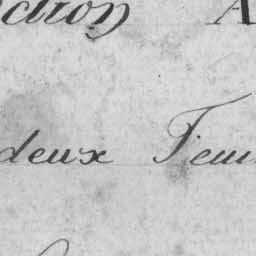 ction A
deux Feui